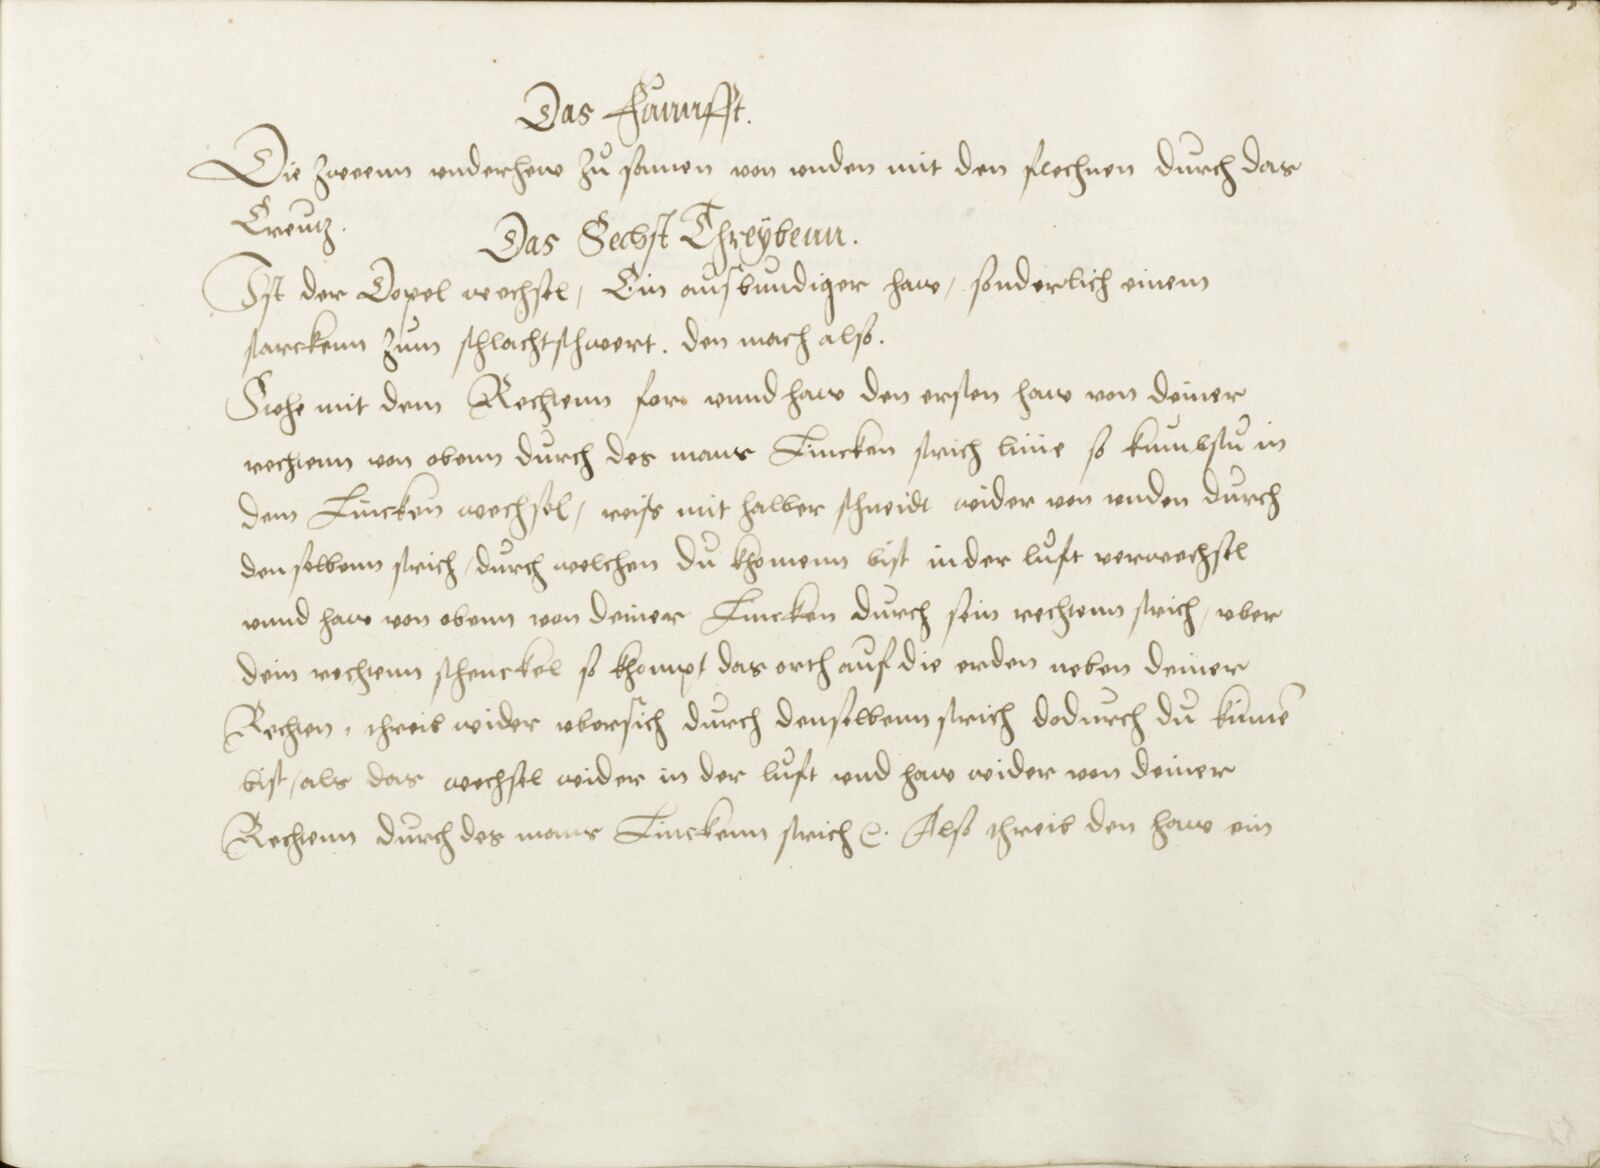 Das Funnfft.
Die zweenn vnderhew zů samen von vnden mit den flechnen durch das
Creutz.
Das Sechst Threÿbenn.
Ist der Dopel wechsel / Ein ausbundiger haw / sonderlich einem
starckenn zum schlachtschwert. den mach also.
Stehe mit dem Rechtenn for vnnd haw den ersten haw von deiner
rechtenn von obenn durch des mans Lincken strich linie so kumbstu in
dem Lincken wechsel / reiß mit halber schneidt wider von vnden durch
denselbenn strich / durch welchen du khomenn bist in der lufft verwechsel
vnnd haw von obenn von deiner Lincken durch sein rechtenn strich / vber
dein rechtenn schenckel so khompt das orth auf die erden neben deiner
Rechten, threib wider vbersich durch denselbenn strich dodurch du kumē
bist / als das wechsel wider in der lufft vnd haw wider von deiner
Rechtenn durch des mans Linckenn strich &. Also threib den haw ein